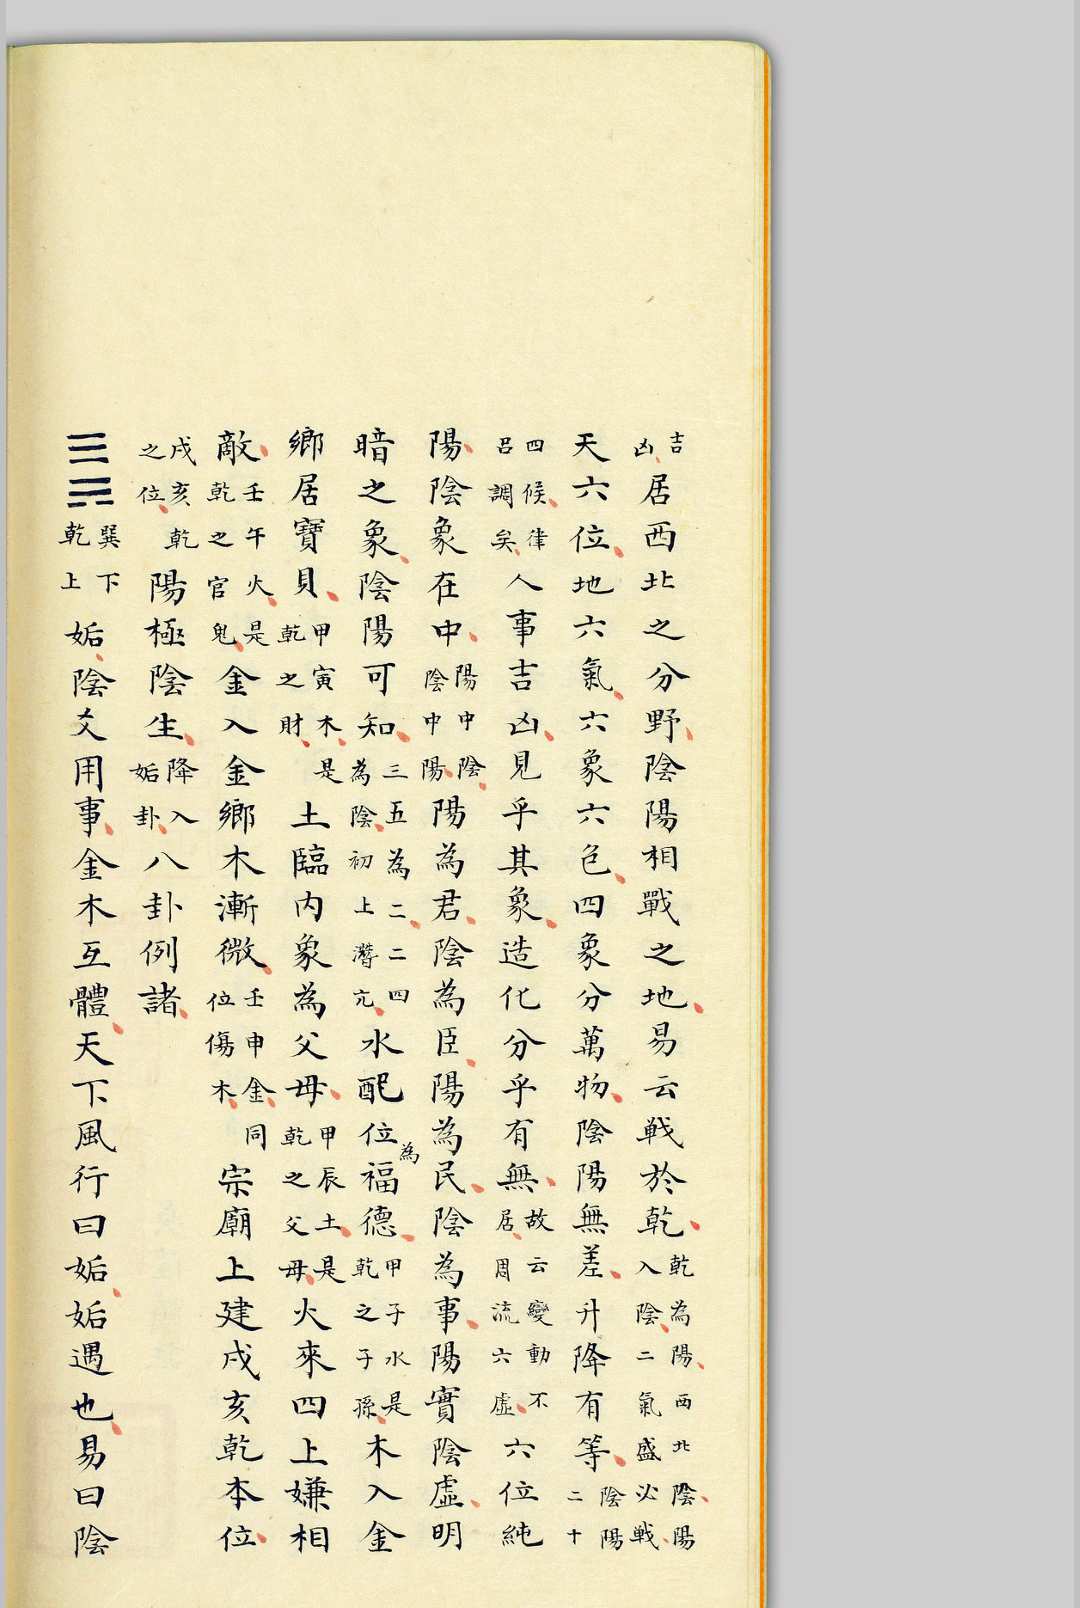 吉凶居西北之分野陰陽相戰之地易云戦於乾乾為陽西北陰陽入陰二氣盛必戦
天六位地六氣六象六色四象分萬物陰陽無差升降有等陰陽二十
四候律呂調矣人事吉凶見乎其象造化分乎有無故云變動不居周流六虛六位純
陽陰象在中陽中陰陰中陽陽為君陰為臣陽為民陰為事陽實陰虛明
暗之象陰陽可知三五為二二四為陰初上潛亢水配位為福德甲子水是乾之子孫木入金
鄉居寶貝甲寅木是乾之財土臨內象為父母甲辰土是乾之父母火來四上嫌相
敵壬午火是乾之官鬼金入金鄉木漸微壬申金同位傷木宗廟上建戌亥乾本位
戌亥乾之位陽極陰生降入姤卦八卦例諸
䷫巽下乾上姤陰爻用事金木互體天下風行曰姤姤遇也易曰陰